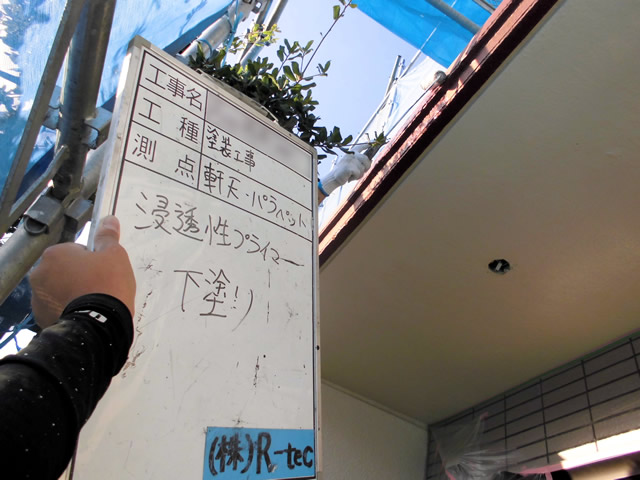 工事名
工種 塗装工事
測点 軒天・パラペット
浸透性プライマー
下塗り
(株)R-tec